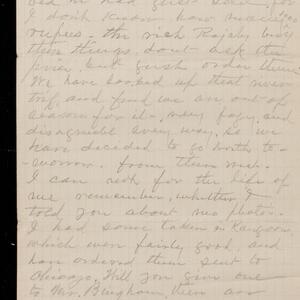 had just
I don't know how many
rupees - the rich Rajahs buy
these things, don't ask the
price but just order them
We have looked up that river
trip and find we are out of
season for it - very foggy, and
disagreeable every way, so we
have decided to go North to-
morrow. from then on.
I can not for the life of
me remember, whether I
told you about my photos.
I had some taken in Rangoon,
which were fairly good, and
have ordered them sent to
Chicago. Will you give one
to Mrs. Bingham, then are